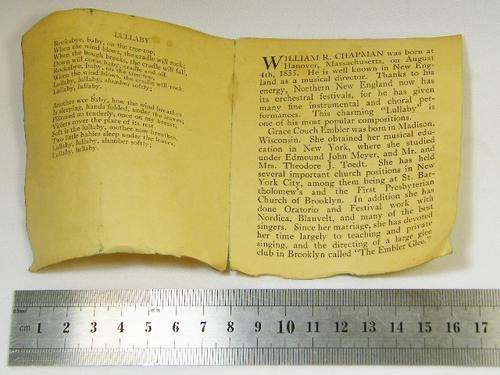 LULLABY
Rockabye, baby, on the tree-top,
When the wind blows, the cradle will rock;
When the bough breaks, the cradle will fall,
Down will come baby, cradle and all.
Rockabye, baby, on the tree-top,
When the wind blows, the cradle will rock
Lullaby, lullaby, slumber softly;
Lullaby, lullaby.
Another wee baby, how the wind
Is sleeping, hands folded, under the
tenderly, once on my
over the place of its
Soft is the lullaby, mother now
Two little babies sleep under the leaves.
Lullaby, lullaby, slumber softly;
Lullaby, lullaby.
WILLIAM R. CHAPMAN was born at
Hanover, Massachusetts, on August
4th, 1855. He is well known in New Eng-
land as a musical director. Thanks to his
energy, Northern New England now has
its orchestral festivals, for he has given
many fine instrumental and choral per-
formances. This charming "Lullaby" is
one of his most popular compositions.
Grace Couch Embler was born in Madison,
Wisconsin. She obtained her musical edu-
cation in New York, where she studied
under Edmund John Meyer, and Mr. and
Mrs. Theodore J. Toedt. She has held
several important church positions in New
York City, among them being at St. Bar-
tholomew's and the First Presbyterian
Church of Brooklyn. In addition she has
done Oratorio and Festival work with
Nordica, Blauvelt, and many of the best
singers. Since her marriage, she has devoted
her time largely to teaching and private
singing, and the directing of a large glee
club in Brooklyn called "The Embler Glee."
cm 1 2 3 4 5 6 7 8 9 10 11 12 13 14 15 16 17